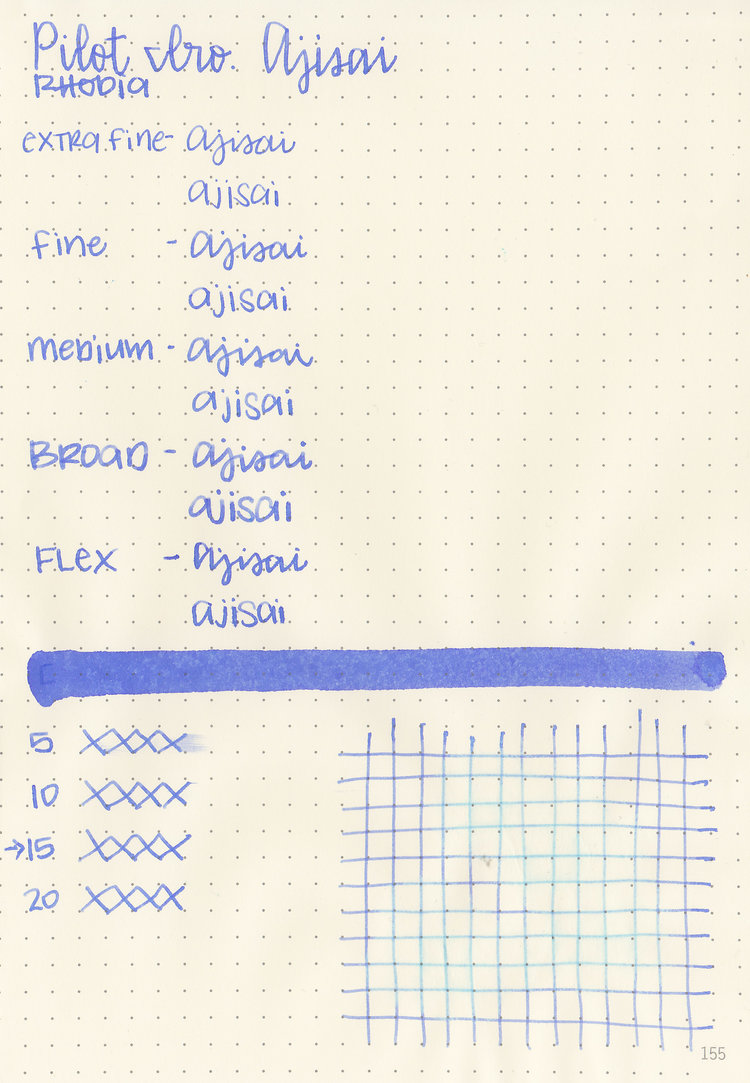 Pilot Iro. Ajisai
RHODIA
extra fine- ajisai
ajisai
fine - ajisai
ajisai
medium - ajisai
ajisai
BROAD - ajisai
ajisai
FLex - Ajisai
ajisai
5 XXXX
10 XXXX
→15 XXXX
20 XXXX
155